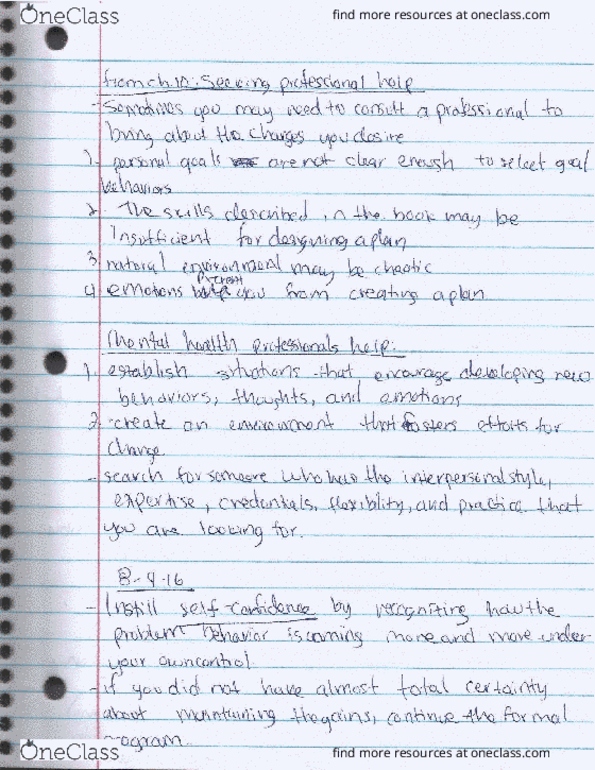 OneClass find more resources at oneclass.com
from ch 10: Seeking professional help
- Sometimes you may need to consult a professional to
bring about the changes you desire
1. personal goals are not clear enough to select goal
behaviors
2. The skills described in the book may be
insufficient for designing a plan
3 natural environment may be chaotic
4 emotions prevent you from creating a plan
Mental health professionals help:
1. establish situations that encourage developing new
behaviors, thoughts, and emotions
2. create an environment that fosters efforts for
change
- search for someone who has the interpersonal style,
expertise, credentials, flexibility, and practice that
you are looking for.
8-4-16
- Instill self-confidence by recognizing how the
problem behavior is coming more and more under
your own control
- if you did not have almost total certainty
about maintaining the gains, continue the formal
program
OneClass find more resources at oneclass.com